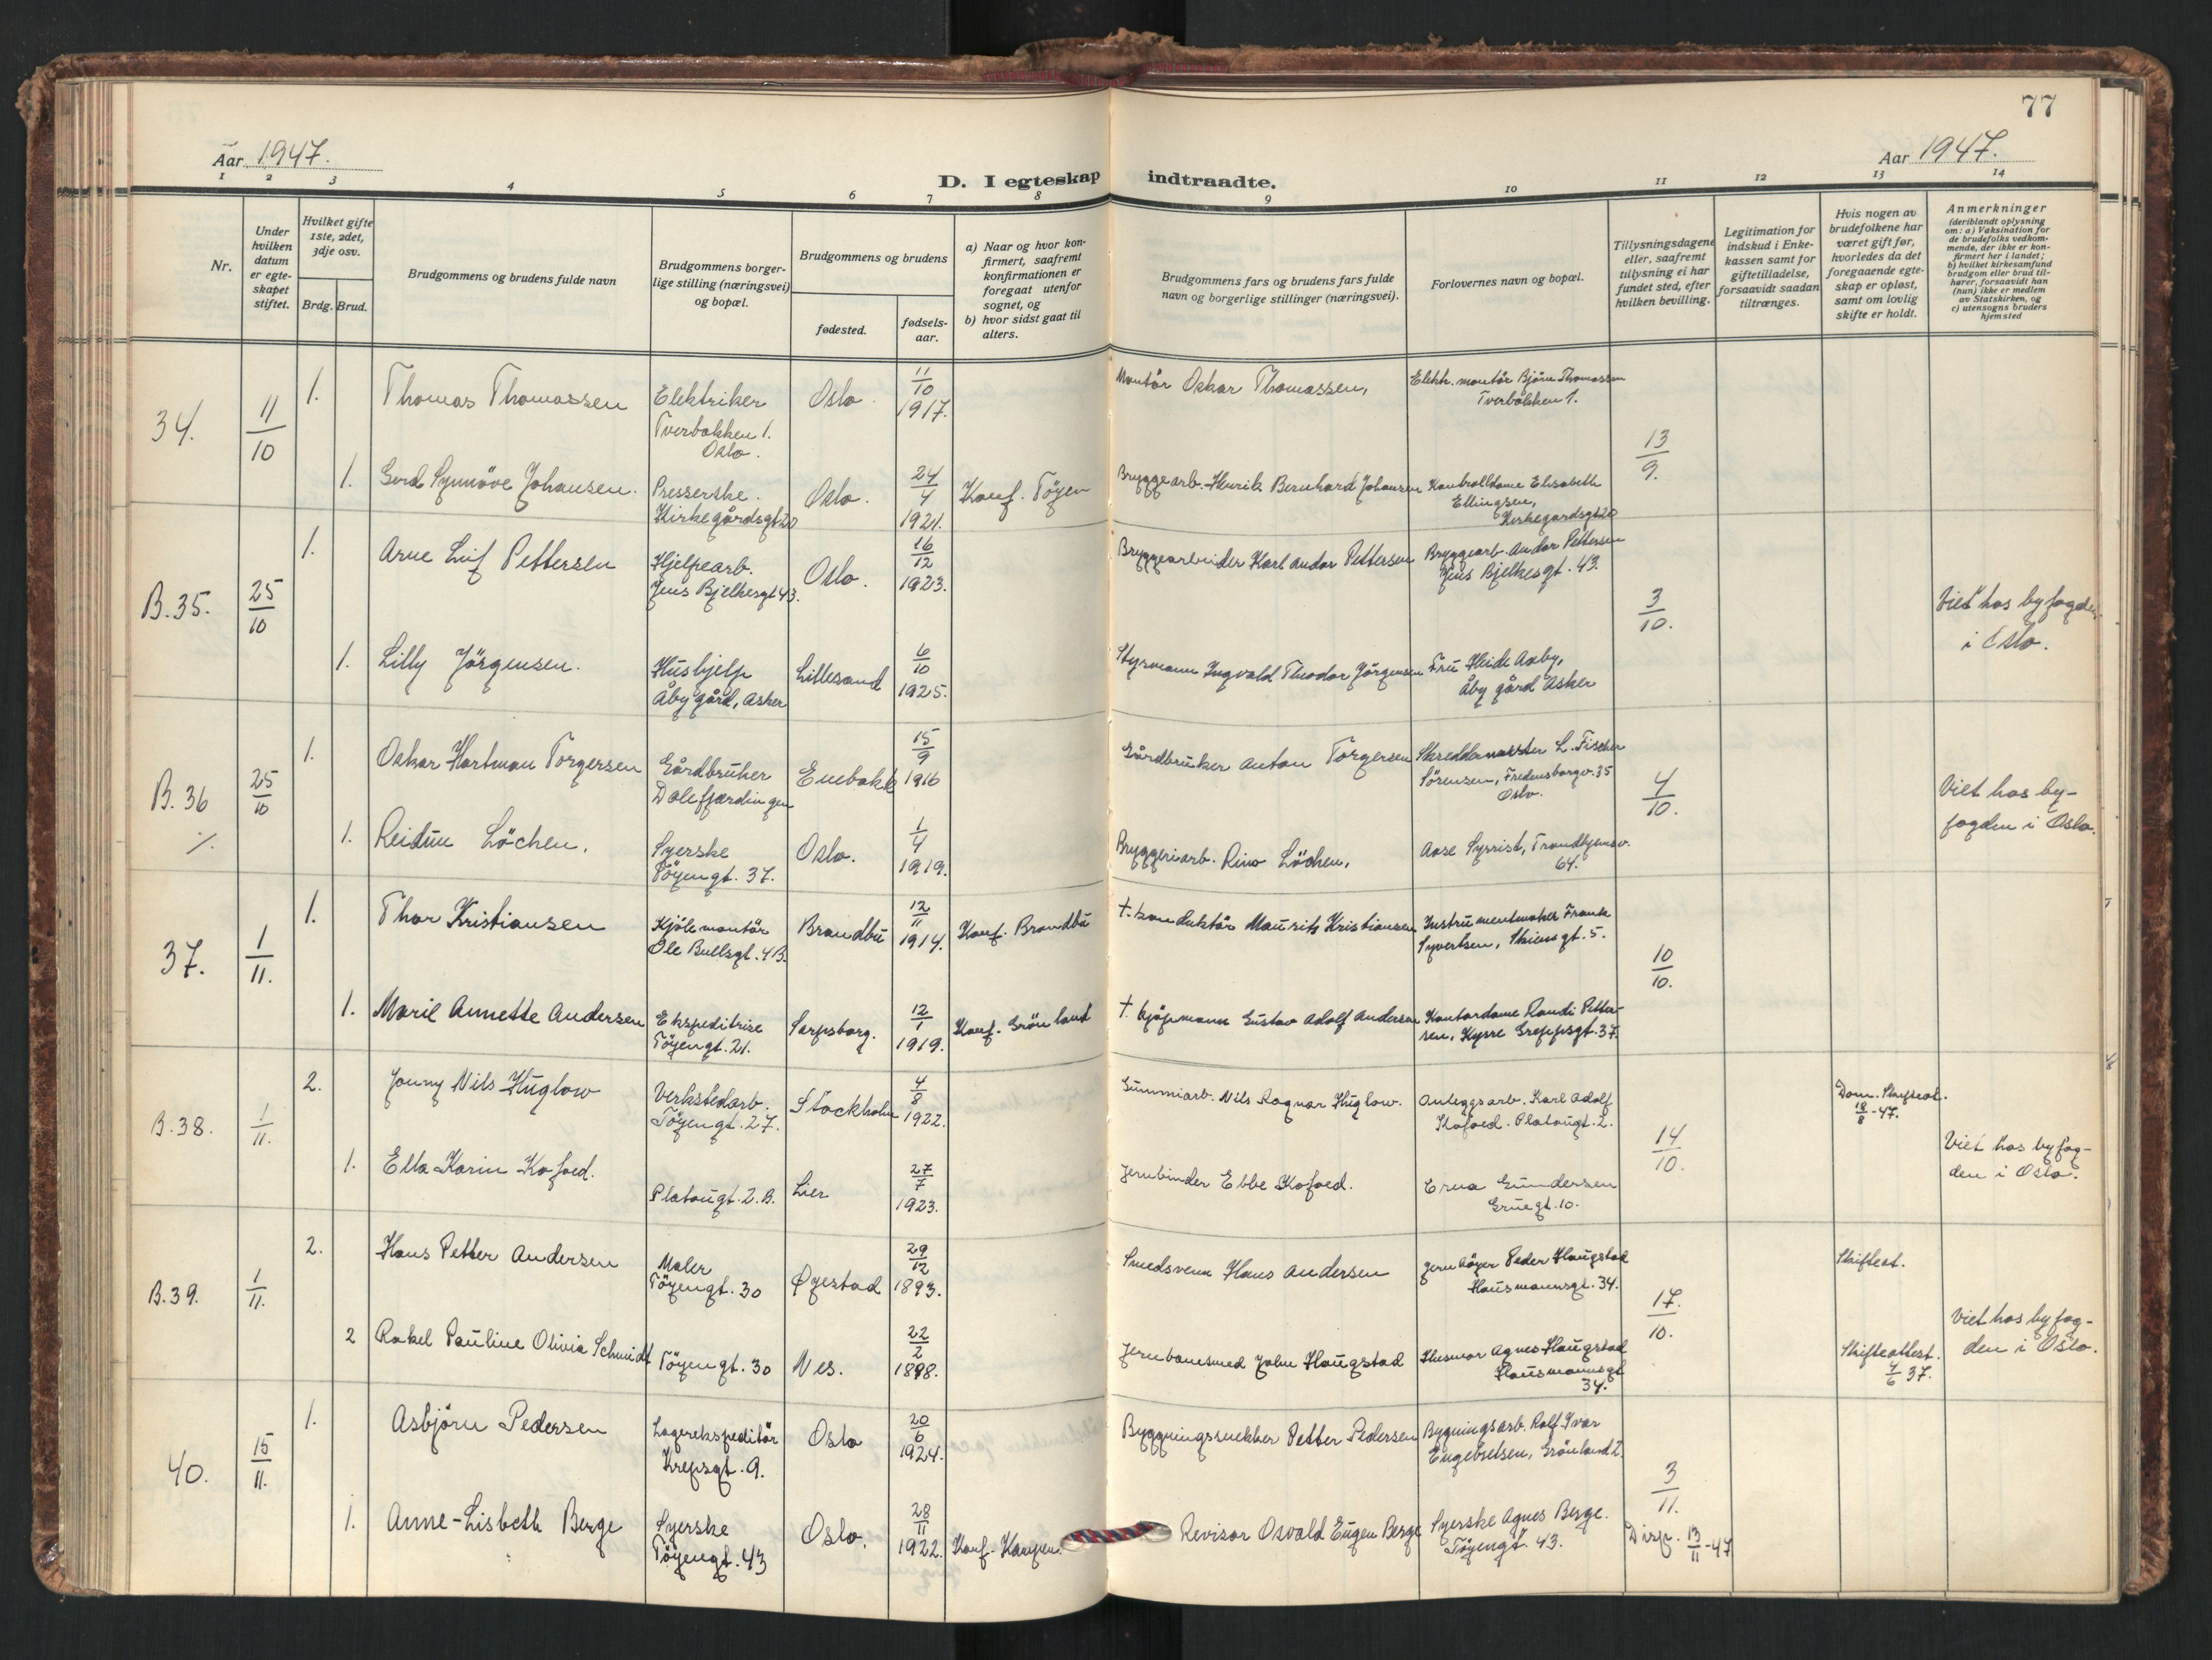 77
Aar 1947.
Aar 1947.
D. I egteskap indtraadte.
1 2 3 4 5 6 7 8 9 10 11 12 13 14
Nr.
Under hvilken datum er egteskapet stiftet.
Hvilket gifte 1ste, 2det, 3dje osv.
Brdg. Brud.
Brudgommens og brudens fulde navn
Brudgommens borgerlige stilling (næringsvei) og bopæl.
Brudgommens og brudens
fødested.
fødselsaar.
a) Naar og hvor konfirmert, saafremt konfirmationen er foregaat utenfor sognet, og
b) hvor sidst gaat til alters.
Brudgommens fars og brudens fars fulde navn og borgerlige stillinger (næringsvei).
Forlovernes navn og bopæl.
Tillysningsdagene eller, saafremt tillysning ei har fundet sted, efter hvilken bevilling.
Legitimation for indskud i Enkekassen samt for giftetilladelse, forsaavidt saadan tiltrænges.
Hvis nogen av brudefolkene har været gift før, hvorledes da det foregaaende egteskap er opløst, samt om lovlig skifte er holdt.
Anmerkninger
(deriblandt oplysning om: a) Vaksination for de brudefolks vedkommende, der ikke er konfirmert her i landet;
b) hvilket kirkesamfund brudgom eller brud tilhører, forsaavidt han (hun) ikke er medlem av Statskirken, og
c) utensogns bruders hjemsted
34. 11/10 1. Thomas Thomassen Elektriker Tverbakken 1. Oslo. Oslo. 11/10 1917. Montör Oskar Thomassen, Elektr. montör Björn Thomassen Tverbakken 1. 13/9.
1. Gerd Synnöve Johansen. Presserske. Kirkegårdsgt 20 Oslo. 24/4 1921. Konf. Töyen Bryggearb. Henrik Bernhard Johansen Kontrolldame Elisabeth Ellingsen, Kirkegardsgt 20
B.35. 25/10 1. Arne Leif Pettersen Hjelpearb. Jens Bjelkesgt 43. Oslo. 16/12 1923. Bryggearbeider Karl Andor Pettersen Bryggearb. Andor Pettersen Jens Bjelkesgt. 43. 3/10. Viet hos byfogden i Oslo.
1. Lilly Jörgensen. Hushjelp Åby gård, Asker Lillesand 6/10 1925. Styrmann Ingvald Theodor Jörgensen Fru Heide Aaby, Åby gård Asker
B.36 25/10 1. Oskar Hartman Torgersen Gårdbruker Dalefjerdingen Enebakk 15/9 1916 Gårdbruker Anton Torgersen Skreddermester L. Fischer Sörensen, Fredensborgv. 35 Oslo. 4/10. Viet hos byfogden i Oslo.
%
1. Reidun Löchen. Syerske Töyengt. 37. Oslo. 1/4 1919. Bryggeriarb. Rino Löchen, Aase Syrrist, Trondhjemsv. 64.
37. 1/11. 1. Thor Kristiansen Kjölemontör Ole Bullsgt. 4B. Brandbu 12/11 1914. Konf. Brandbu † konduktör Maurits Kristiansen Instrumentmaker Frank Syvertsen, Skiensgt. 5. 10/10.
1. Maril Annette Andersen Ekspeditrise Töyengt. 21. Sarpsborg. 12/1 1919. Konf. Grönland † kjöpmann Gustav Adolf Andersen Kontordame Randi Pettersen, Kyrre Greppsgt. 37.
B.38. 1/11. 2. Jonny Nils Huglow Verkstedarb. Töyengt. 27. Stockholm 4/8 1922. Gummiarb. Nils Ragnar Huglow. Anleggsarb. Karl Adolf Kofoed. Platougt. 2. 14/10. Dom. Skifteat. 18/8 - 47. Viet hos byfogden i Oslo.
1. Ella Karin Kofoed. Platougt. 2. B. Lier 27/7 1923. Jernbinder Ebbe Kofoed. Erna Gundersen Gruegt. 10.
B.39. 1/11. 2. Hans Petter Andersen Maler Töyengt. 30 Øyestad 29/12 1893. Smedsvenn Hans Andersen Peder Haugstad Hausmannsgt. 34. 17./10. Skifteat. Viet hos byfogden i Oslo.
2 Rakel Pauline Olivia Schmidt Töyengt. 30 Nes. 22/2 1898. Jernbanesmed John Haugstad Husmor Agnes Haugstad Hausmannsgt 34. Skifteattest. 4/6 37.
40. 15/11. 1. Asbjörn Pedersen Lagerekspeditör Krepsgt. 9. Oslo 20/6 1924. Byggningssnekker Petter Pedersen Bygningsarb. Rolf Ivar Engebretsen, Grönland 2. 3/11.
1. Anne-Lisbeth Berge Syerske Töyengt. 43 Oslo. 28/11 1922. Konf. Kampen. Revisor Osvald Eugen Berge Syerske Agnes Berge. Töyengt. 43. Disp. 13/11 - 47